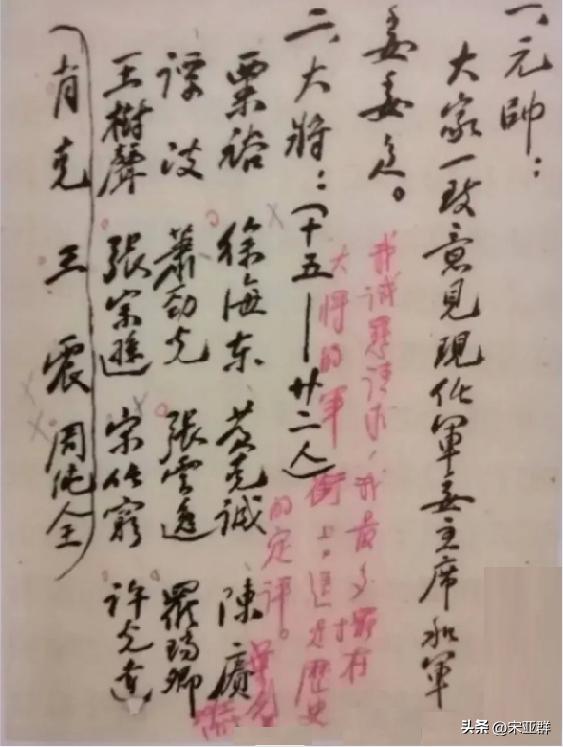 一、元帥：
大家一致意見現任軍委主席和軍
委委員。
我誠懇請求，我最多擺在
大將的軍銜上。這是歷史
的定評。
二、大將：（十五——廿二人）
粟裕 徐海东 黄克诚 陳賡
谭政 蕭勁光 張雲逸 羅瑞卿
王樹聲 張宗遜 宋任窮 許光達
（肖克 王震 周纯全）
头条 @宋亚群